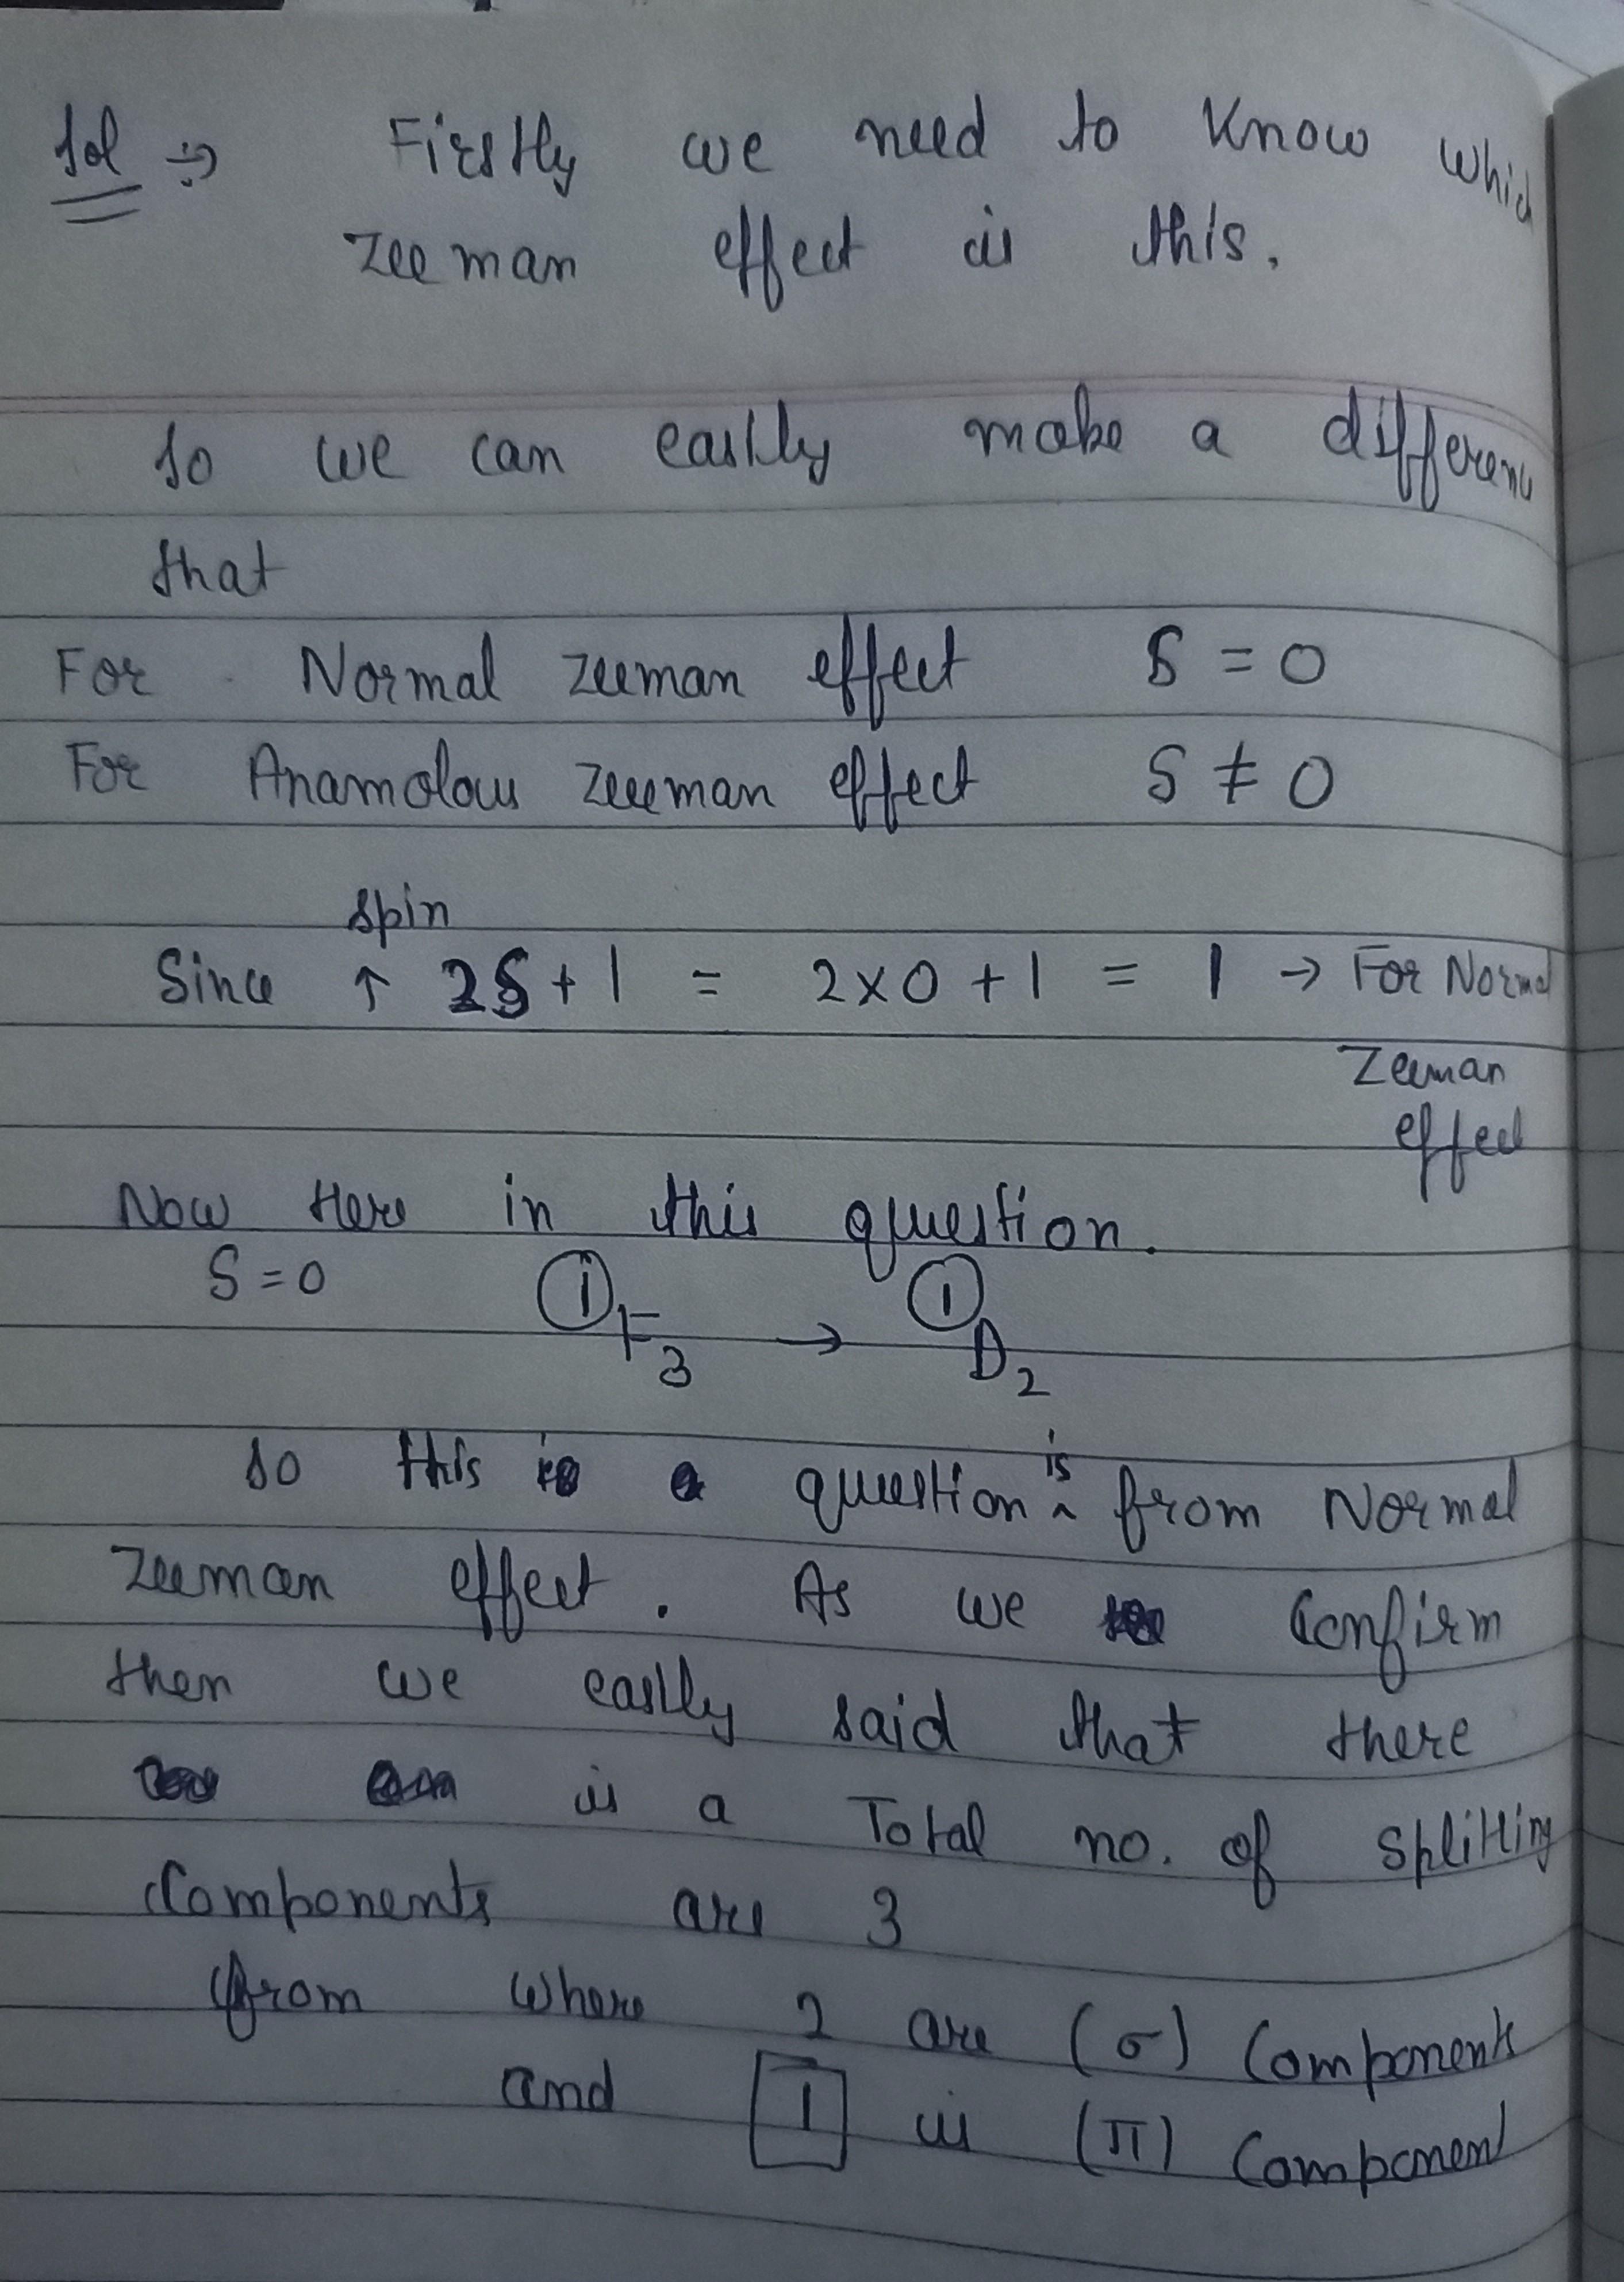 Sol ⇒ Firstly we need to know which
zeeman effect is this.
So we can easlly make a differenc
that
For Normal zeeman effect S = 0
For Anamolous zeeeman effect S ≠ 0
spin
Since ↑ 2S + 1 = 2×0 + 1 = 1 → For Normal
Zeeman
effect
Now Here in this question.
S = 0 ¹F₃ → ¹D₂
So this question is from Normal
zeeman effect. As we Confirm
then we easlly said that there
is a Total no. of splitting
Components are 3
from where 2 are (σ) Components
and 1 is (π) Component